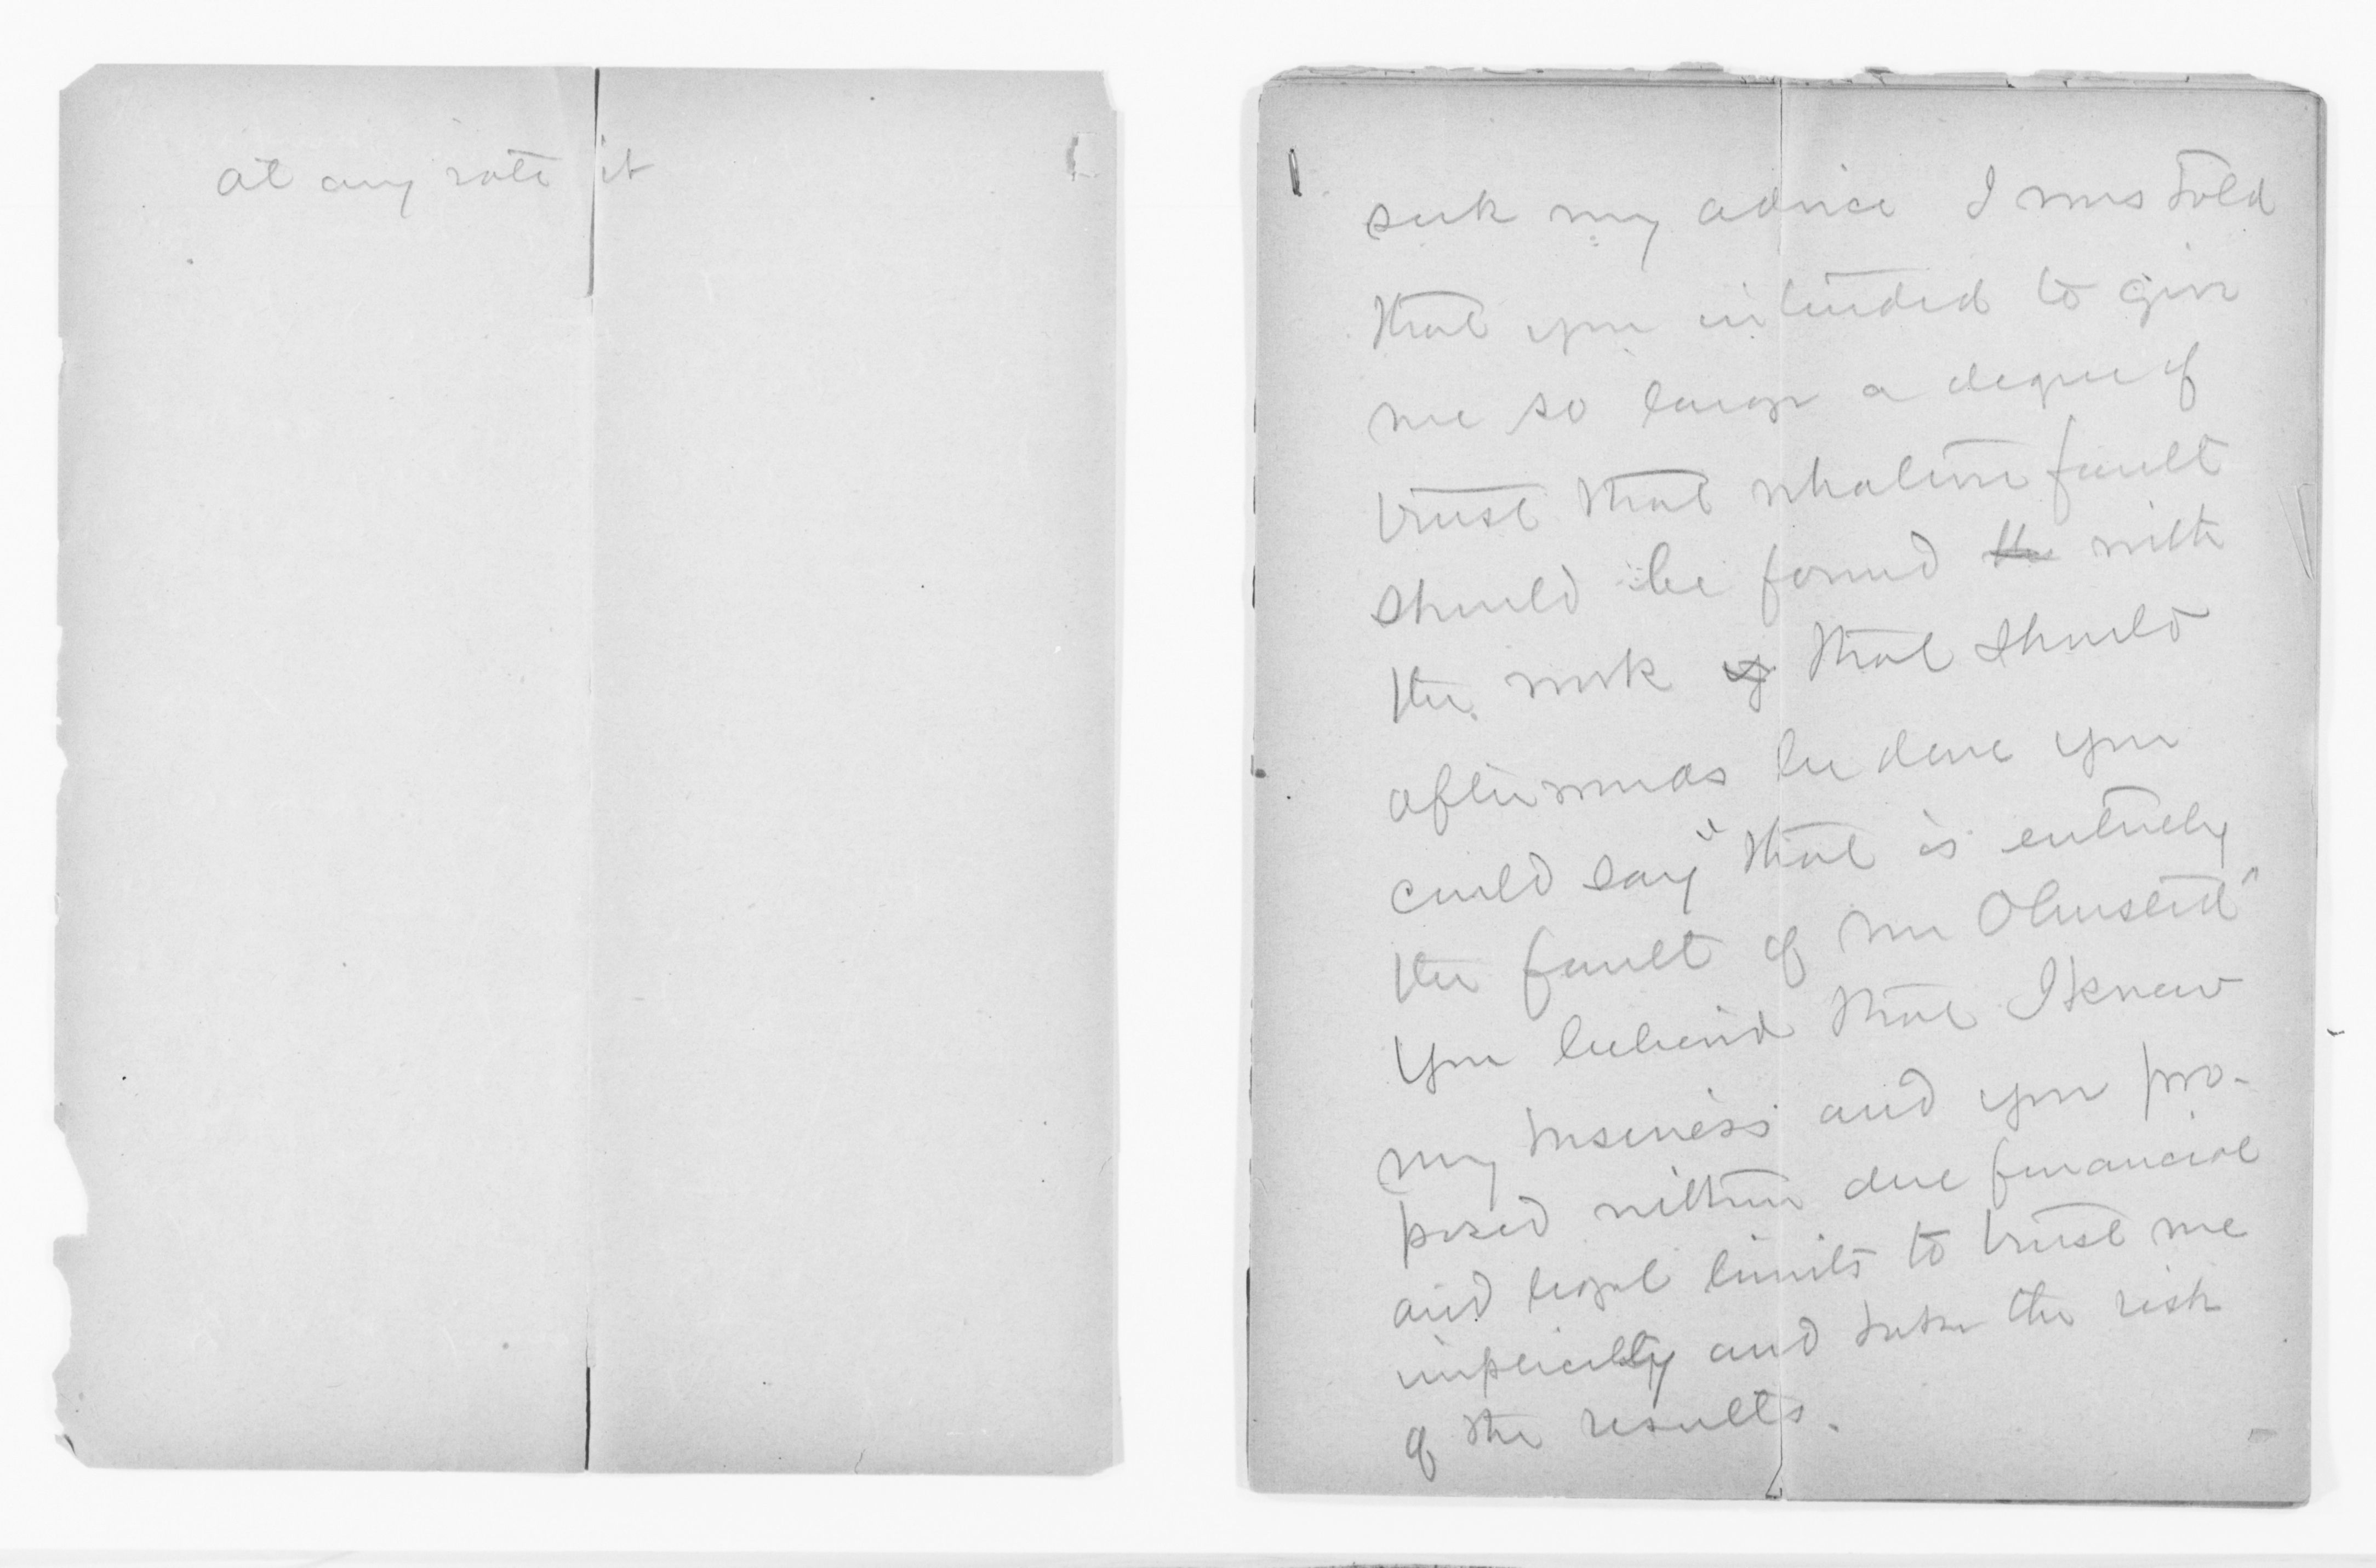 at any rate it
seek my advice I was told
that you intended to give
me so large a degree of
trust that whatever fault
should be found the with
the work of that should
afterwards be done you
could say "that is entirely
the fault of Mr Olmsted"
You believed that I knew
my business and you pro-
posed within due financial
and legal limits to trust me
implicitly and take the risk
of the results.